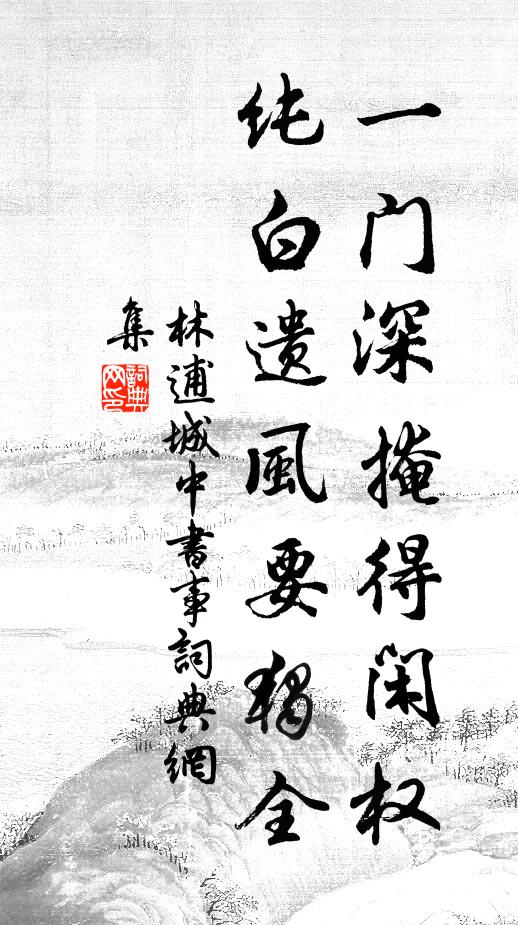 一门深掩得闲权
纯白遗風要獨全
林逋城中書事詞典網
集
詞典網印